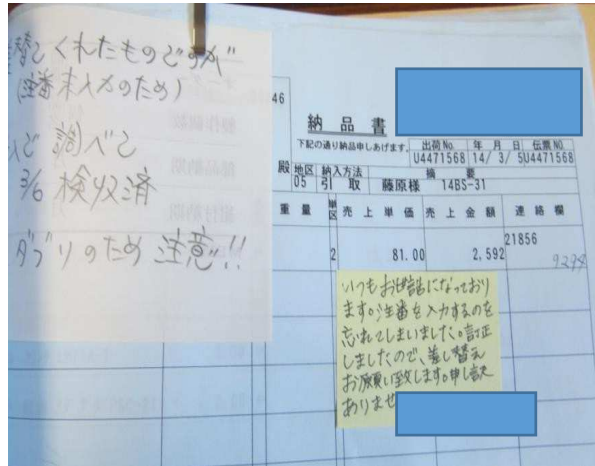 替てくれたものですが
(注番未入力のため)
で調べて
3/6 検収済
ダブりのため注意!!
46
納品書
下記の通り納品申しあげます。
出荷No. 年 月 日 伝票NO.
U4471568 14/ 3/ 5U4471568
殿 地区 納入方法 摘 要
05 引 取 藤原様 14BS-31
重 量 単区 売 上 単 価 売 上 金 額 連 絡 欄
2 81.00 2,592 21856
9294
いつもお世話になっており
ます。注番を入力するのを
忘れてしまいました。訂正
しましたので、差し替え
お願い致します。申し訳
ありませ